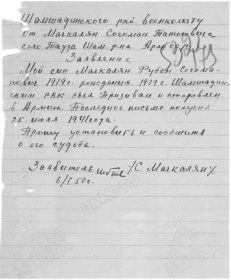 Шамшадинского рай военкомату
от Магкалян Согомон Татосовича
село Тауза Шам. р-на Арм
Заявление
Мой сын Магкалян Рубен Согомо-
нович 1919 г. рождения. 1939 г. Шамшади-
нским РВК был призыван и отправлен
в Армию. Последнее письмо получил
25 июля 1941 года.
Прошу установить и сообщить
о его судьбе.
Заявитель /С Магкалян/
6/I 50 г.